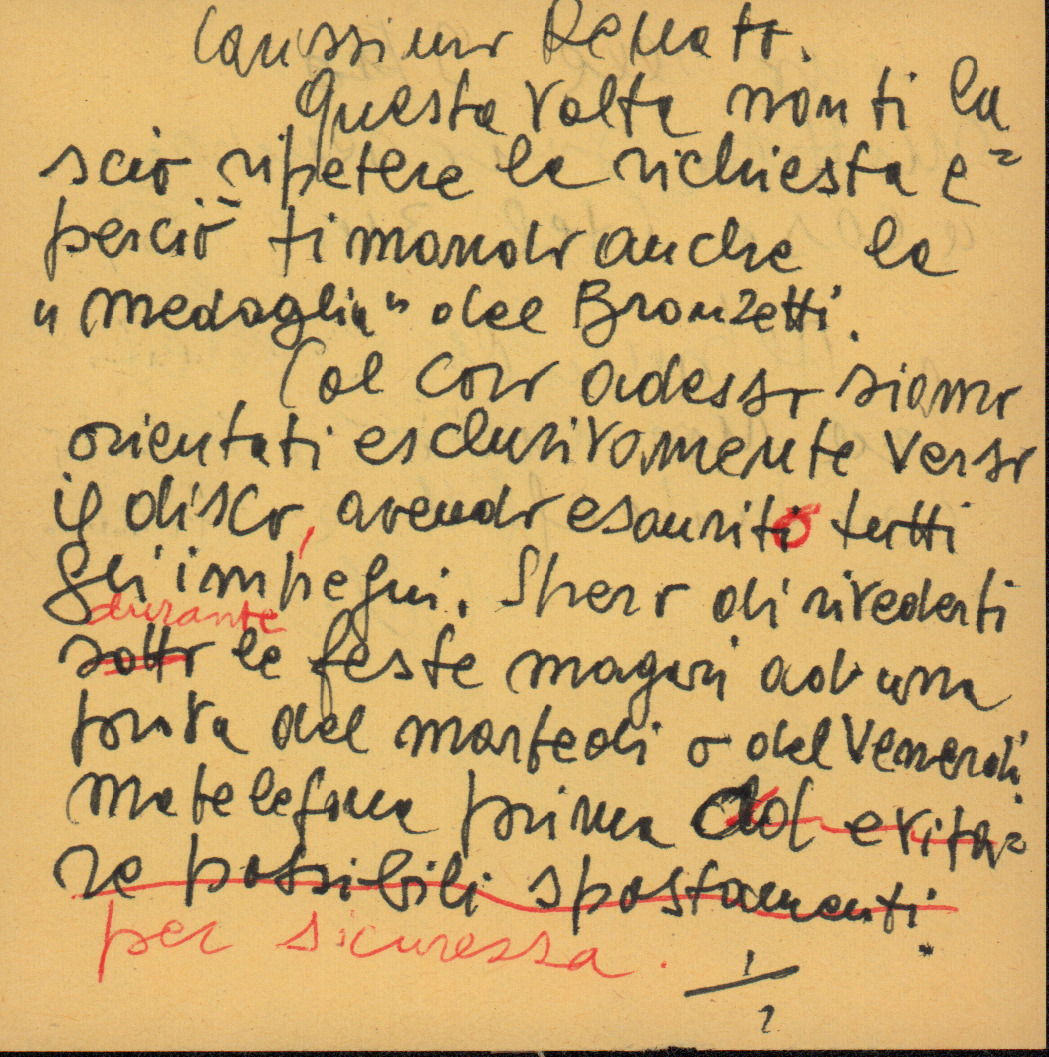 Carissimo Renato.
Questa volta non ti la
scio ripetere la richiesta e=
perciò ti mando anche la
"medaglia" del Bronzetti.
Col coro adesso siamo
orientati esclusivamente verso
il disco, avendo esaurito tutti
gli impegni. Spero di rivederti
durante
sotto le feste magari ad una
prova del martedì o del Venerdì
ma telefona prima ad evita=
re possibili spostamenti.
per sicuressa.
1/2